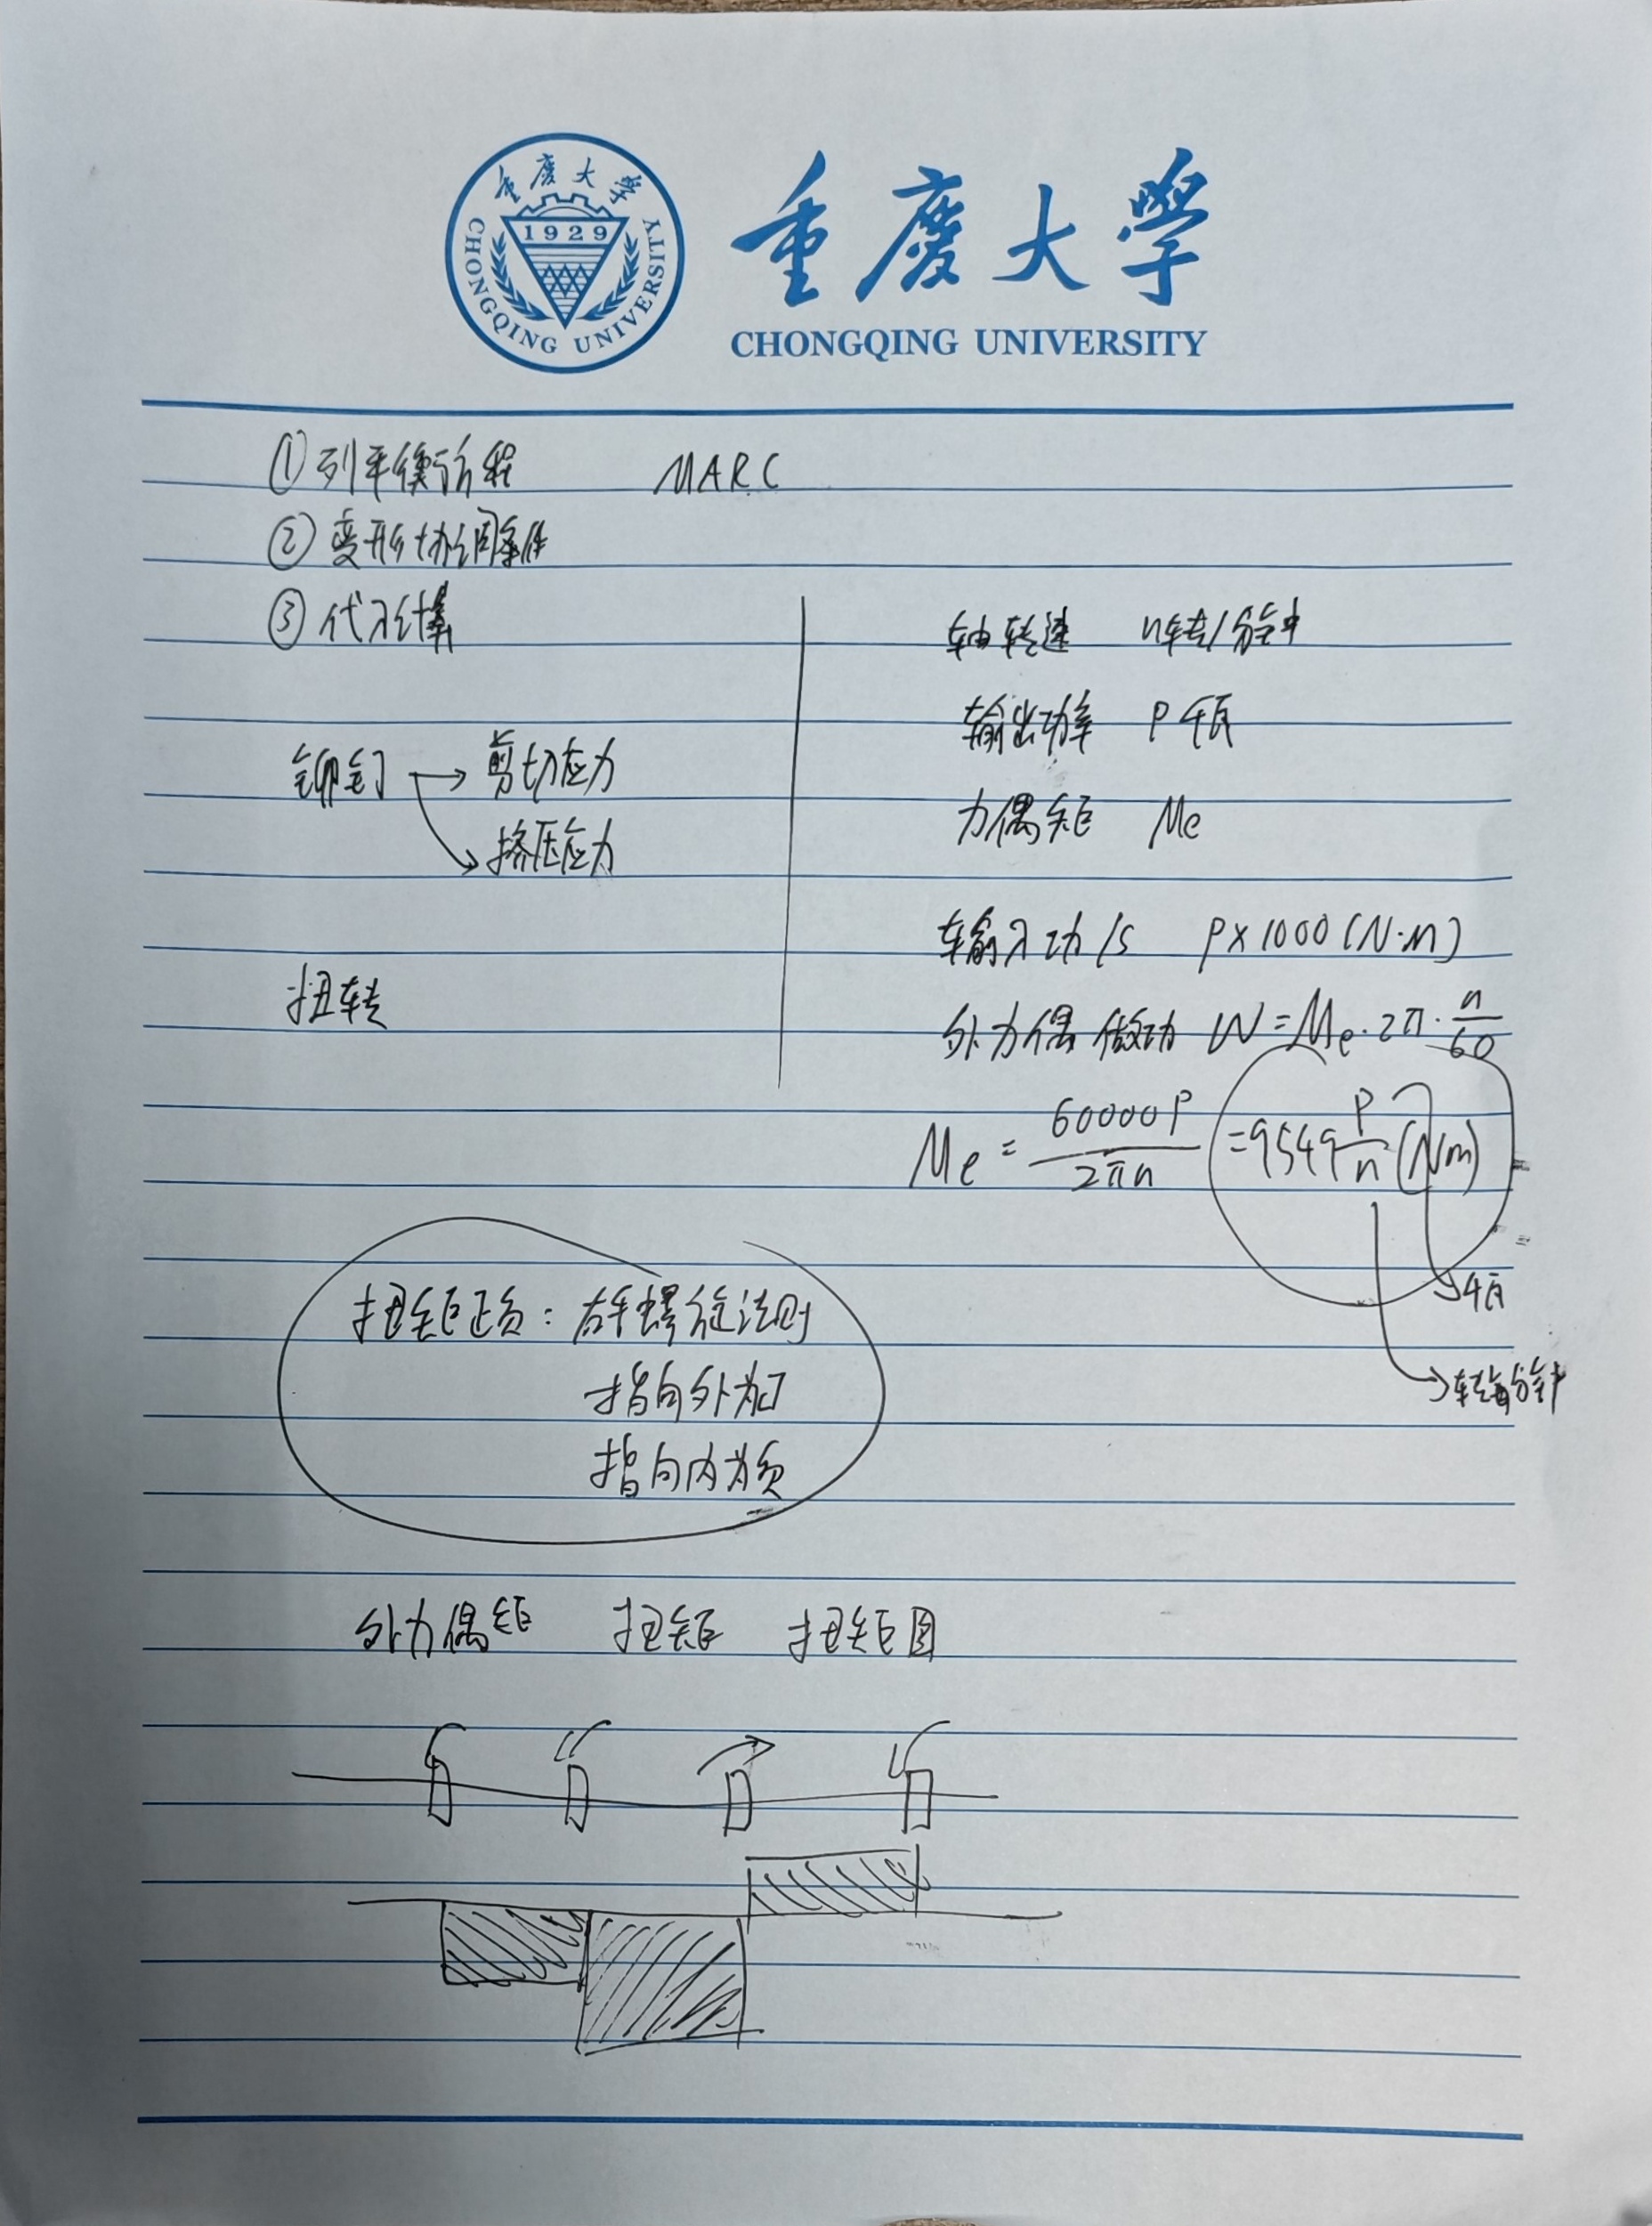 重慶大學
1929
CHONGQING UNIVERSITY
重慶大學
CHONGQING UNIVERSITY
①列平衡方程 MARC
②变形协调条件
③代入计算
铆钉 → 剪切应力
→ 挤压应力
扭转
轴转速 n转/分钟
输出功率 P千瓦
力偶矩 Me
输入功/s P×1000(N·m)
外力偶做功 W=Me·2π·n/60
Me=60000P/2πn =9549P/n(Nm)
→千瓦
→转每分钟
扭矩正负：右手螺旋法则
指向外为正
指向内为负
外力偶矩 扭矩 扭矩图